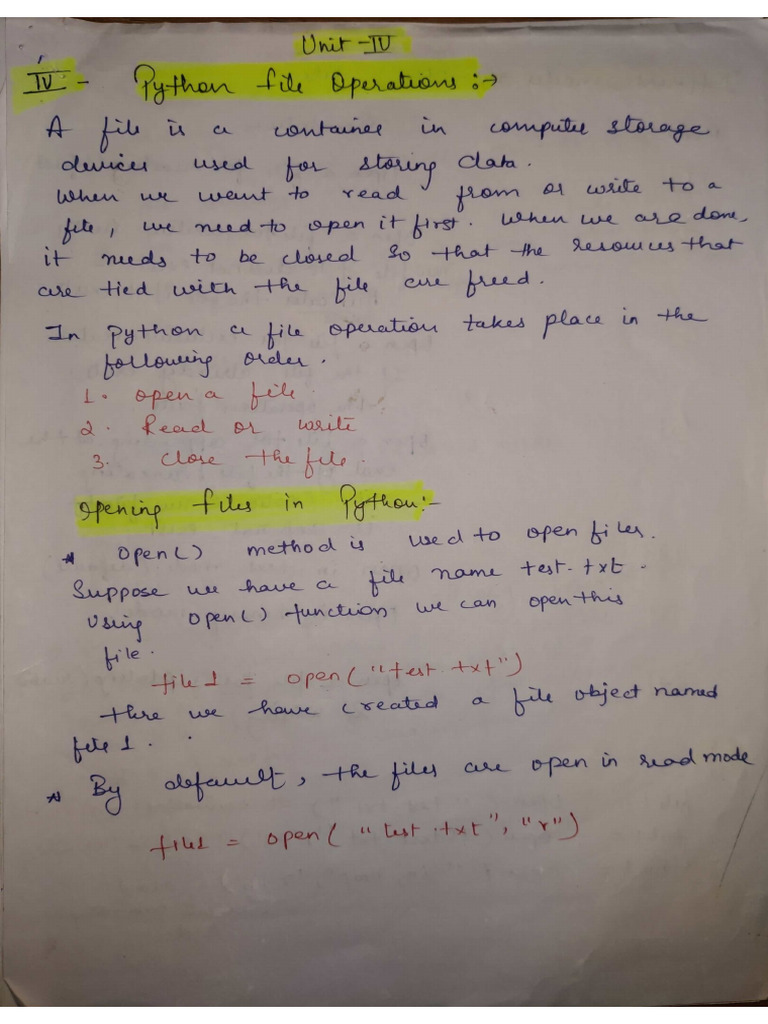 Unit-IV
IV:- Python file Operations:→
A file is a container in computer storage
devices used for storing data.
When we want to read from or write to a
file, we need to open it first. When we are done,
it needs to be closed so that the resources that
are tied with the file are freed.
In python a file operation takes place in the
following order.
1. open a file.
2. Read or write
3. close the file.
Opening files in Python:-
* open() method is used to open files.
Suppose we have a file name test.txt.
Using open() function we can open this
file.
file1 = open("test.txt")
there we have created a file object named
file 1.
* By default, the files are open in read mode
file1 = open("test.txt", "r")